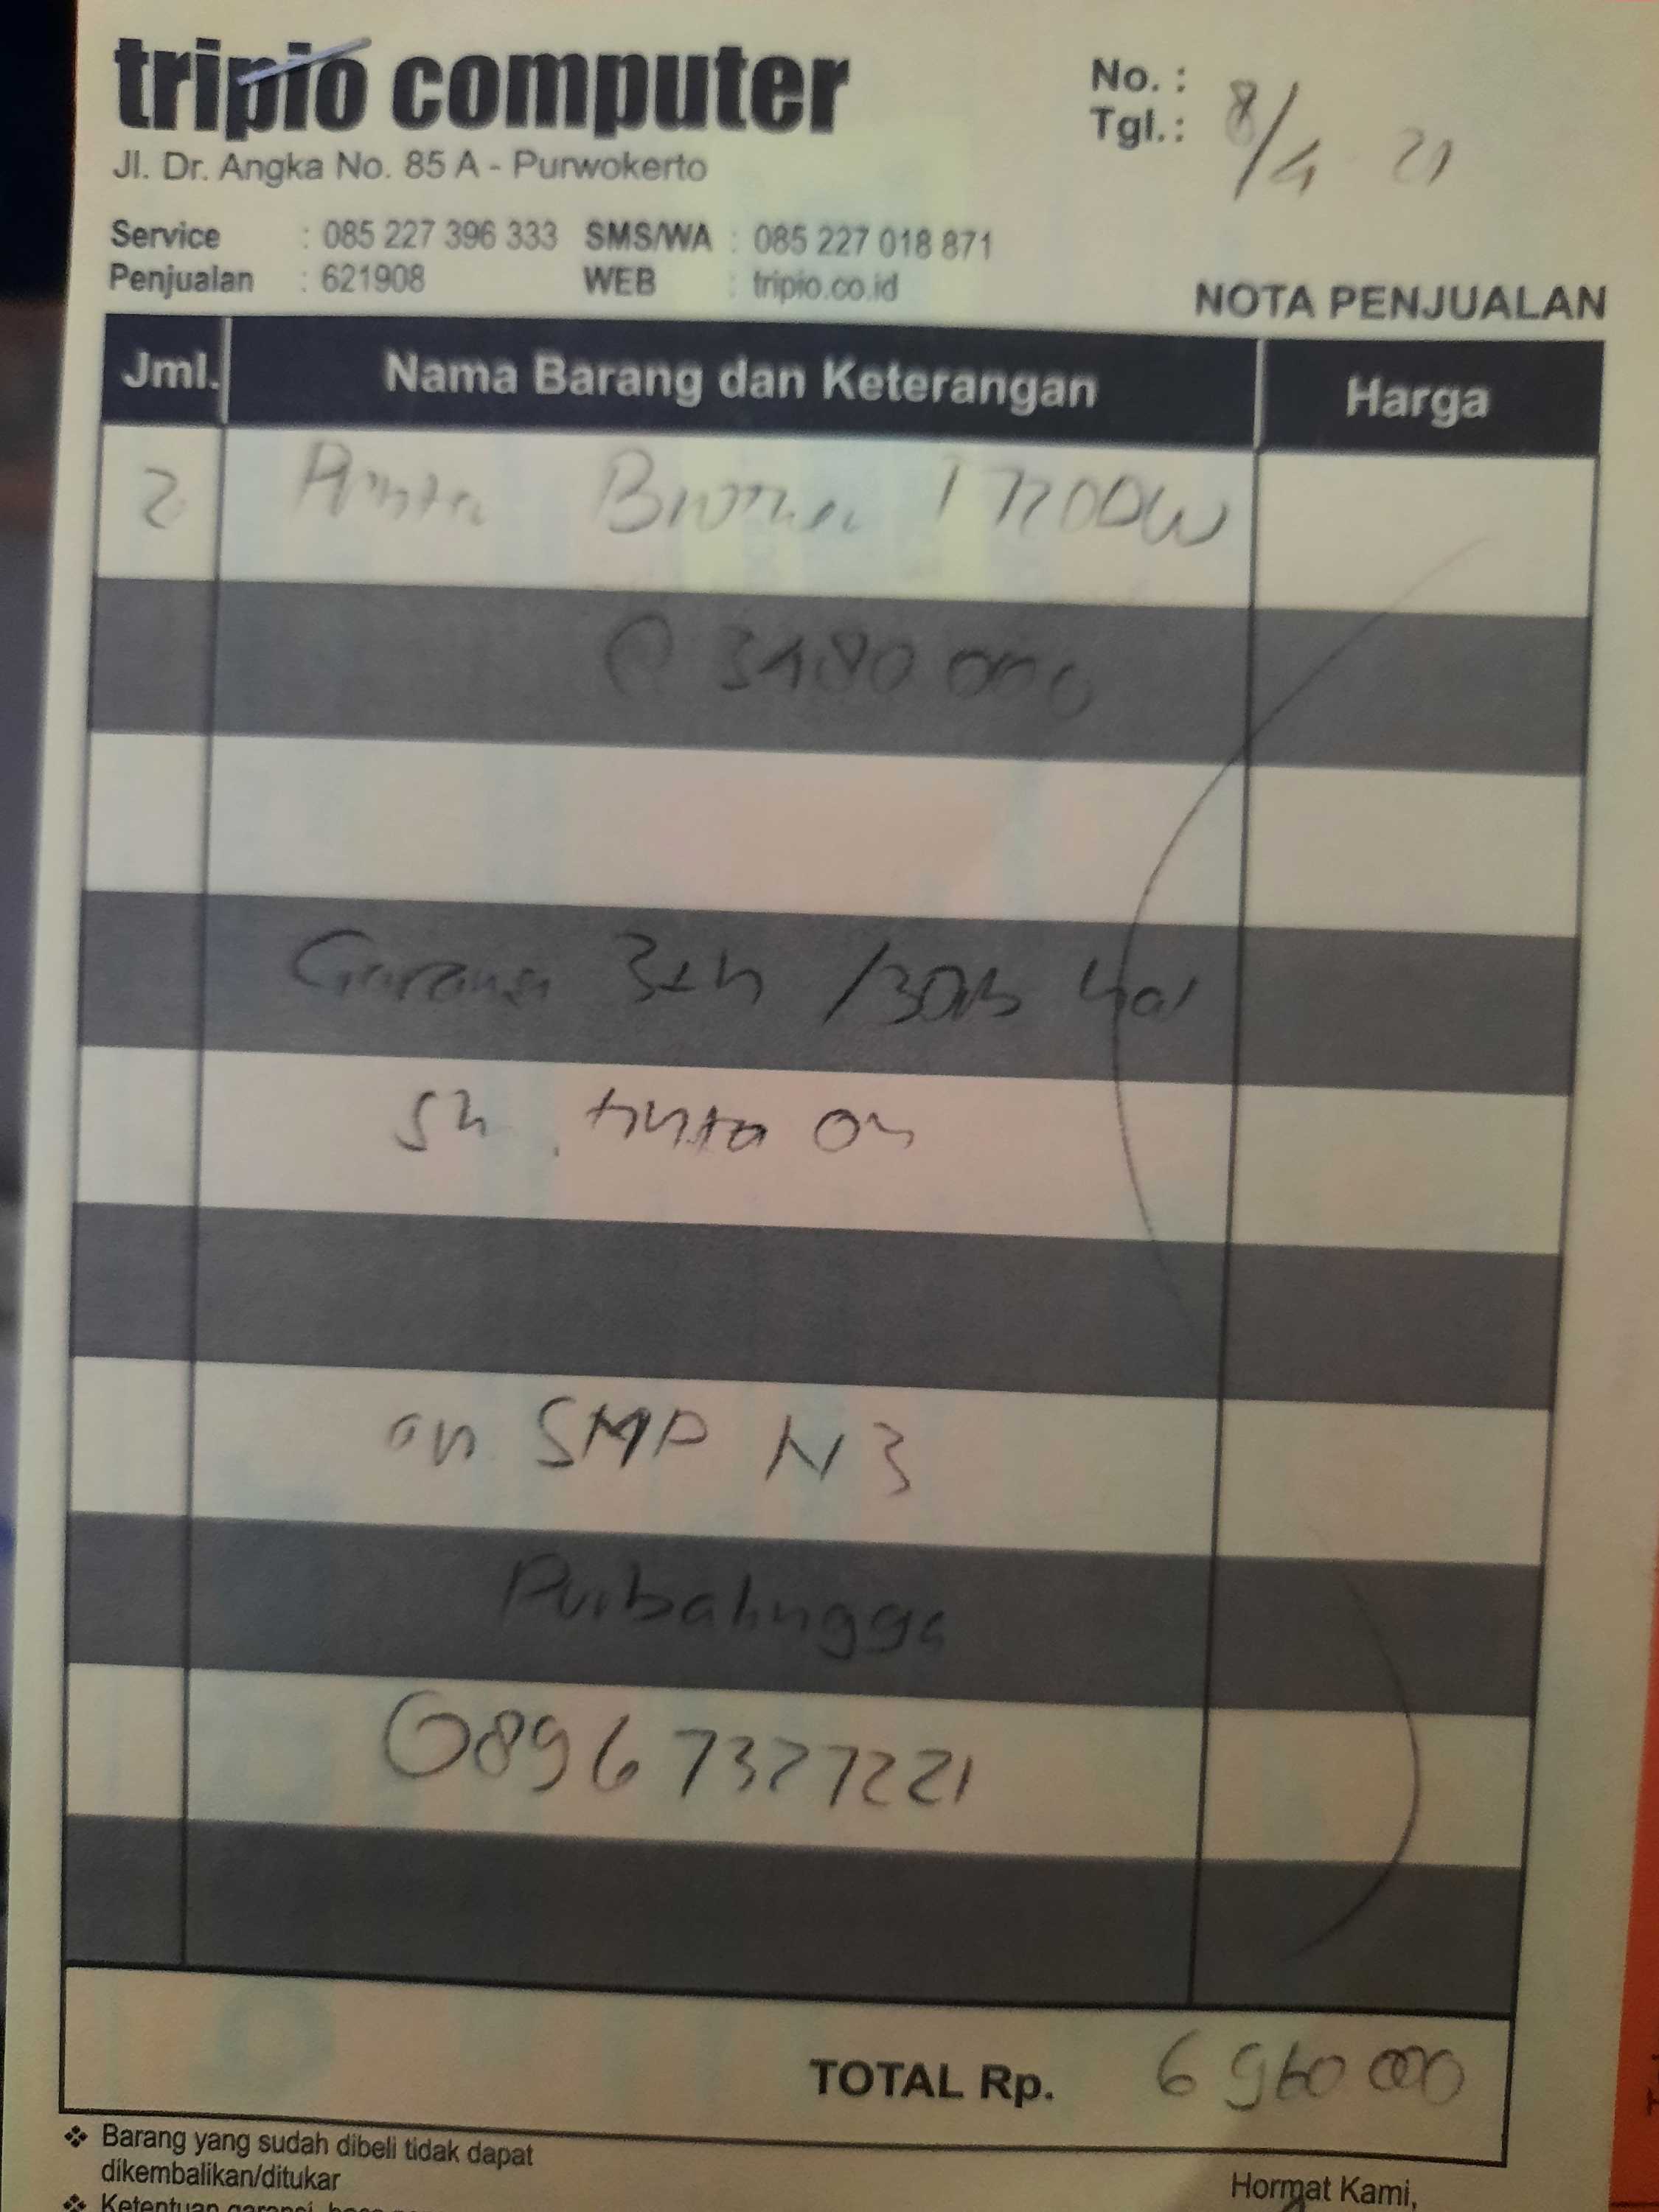 tripio computer
Jl. Dr. Angka No. 85 A - Purwokerto
No. :
Tgl. : 8/4 21
Service : 085 227 396 333 SMS/WA : 085 227 018 871
Penjualan : 621908 WEB : tripio.co.id
NOTA PENJUALAN
Jml. Nama Barang dan Keterangan Harga
2 T720DW
@ 3480 000
Garansi 3th
tinta
an SMP N 3
Purbalingga
0896 7327221
TOTAL Rp. 6 960 000
❖ Barang yang sudah dibeli tidak dapat
dikembalikan/ditukar
❖ Ketentuan garansi
Hormat Kami,